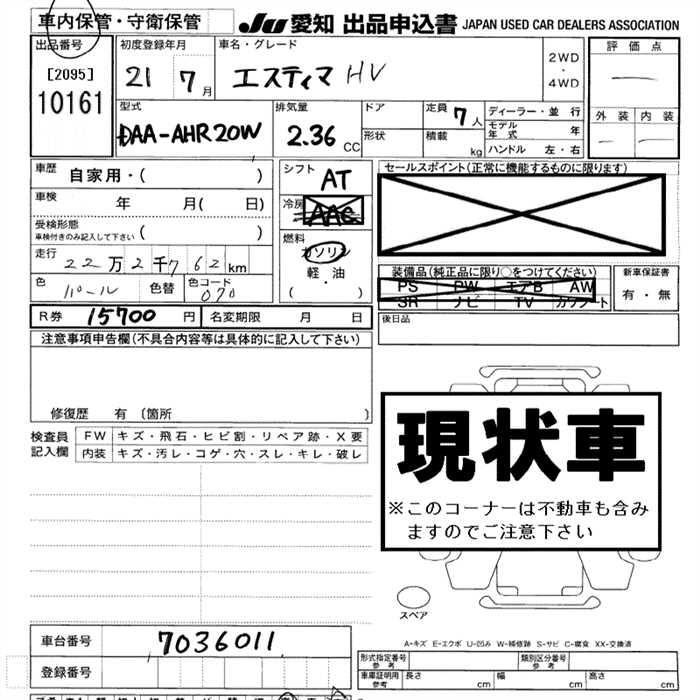 車内保管・守衛保管
JU 愛知 出品申込書 JAPAN USED CAR DEALERS ASSOCIATION
出品番号
[2095]
10161
初度登録年月
21 7月
車名・グレード
エスティマ HV
2WD・4WD
評価点
型式
DAA-AHR20W
排気量
2.36 CC
ドア
形状
定員 7人
積載 kg
ディーラー・並行
モデル年式 年
ハンドル 左・右
外装 内装
車歴 自家用・( )
車検 年 月( 日)
受検形態
車検付きのみ記入して下さい ( )
走行 22万2千762km
色 パール 色替 色コード 070
シフト AT
冷房 AAC
燃料 ガソリン
軽・油
( )
セールスポイント(正常に機能するものに限ります)
装備品(純正品に限り○をつけてください)
PS PW エアB AW
SR ナビ TV カワシート
新車保証書
有・無
R券 15700円 名変期限 月 日
後日品
注意事項申告欄(不具合内容等は具体的に記入して下さい)
修復歴 有〔箇所 〕
検査員記入欄
FW キズ・飛石・ヒビ割・リペア跡・X要
内装 キズ・汚レ・コゲ・穴・スレ・キレ・破レ
現状車
※このコーナーは不動車も含み
ますのでご注意下さい
スペア
A-キズ E-エクボ U-凹み W-補修跡 S-サビ C-腐食 XX-交換済
車台番号 7036011
登録番号
形式指定番号 参考
類別区分番号 参考
車庫証明用 参考 長さ cm 幅 cm 高さ cm